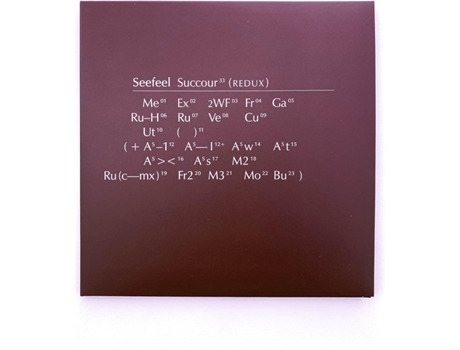 Seefeel Succour³³ (REDUX)
Me⁰¹ Ex⁰² 2WF⁰³ Fr⁰⁴ Ga⁰⁵
Ru–H⁰⁶ Ru⁰⁷ Ve⁰⁸ Cu⁰⁹
Ut¹⁰ ( )¹¹
( + A⁵–1¹² A⁵—I¹²⁺ A⁵w¹⁴ A⁵t¹⁵
A⁵><¹⁶ A⁵s¹⁷ M2¹⁸
Ru(c—mx)¹⁹ Fr2²⁰ M3²¹ Mo²² Bu²³ )